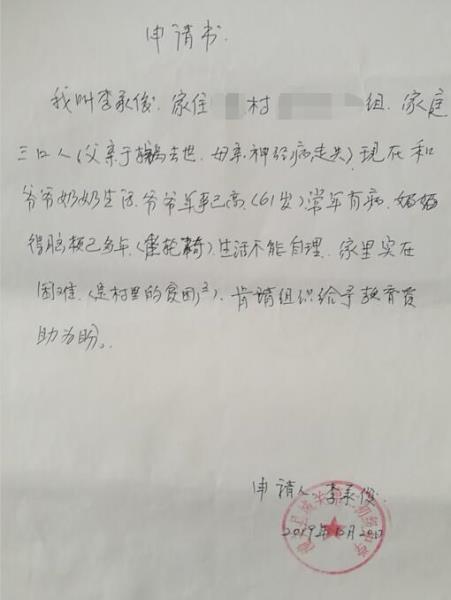 申请书.
我叫李承俊.家住 村 组.家庭
三口人(父亲于 去世.母亲.神经病走失)现在和
爷爷奶奶生活.爷爷年事已高.(61岁).常年有病.奶奶
得脑梗已多年.(坐轮椅).生活不能自理.家里实在
困难.(是村里的贫困户).肯请组织给予教育资
助为盼。
申请人:李承俊
2019年10月20日